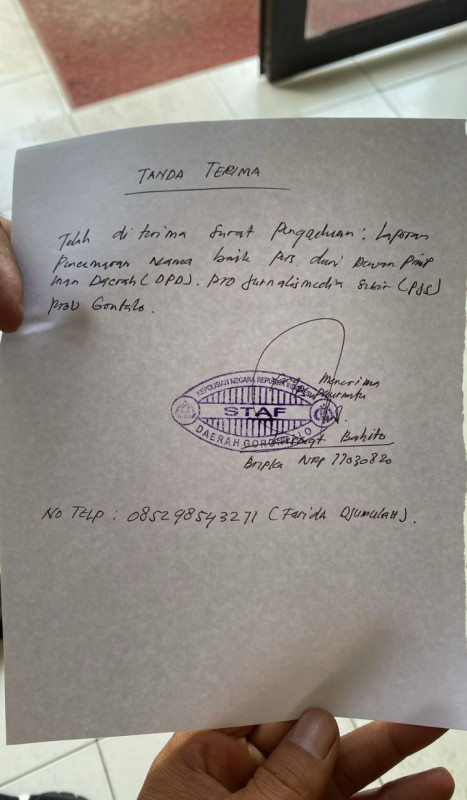 TANDA TERIMA
Telah di terima Surat Pengaduan : Laporan
Pencemaran Nama baik Pers dari Dewan Pimp
inan Daerah (DPD). PRO Jurnalismedia Siber (PJS)
Prov Gontalo.
Yang Menerima
KEPOLISIAN NEGARA REPUBLIK
STAF
DAERAH GORONTALO
Bahito
Bripka NRP 77030820
NO TELP : 085298543271 (Farida Djumulah).